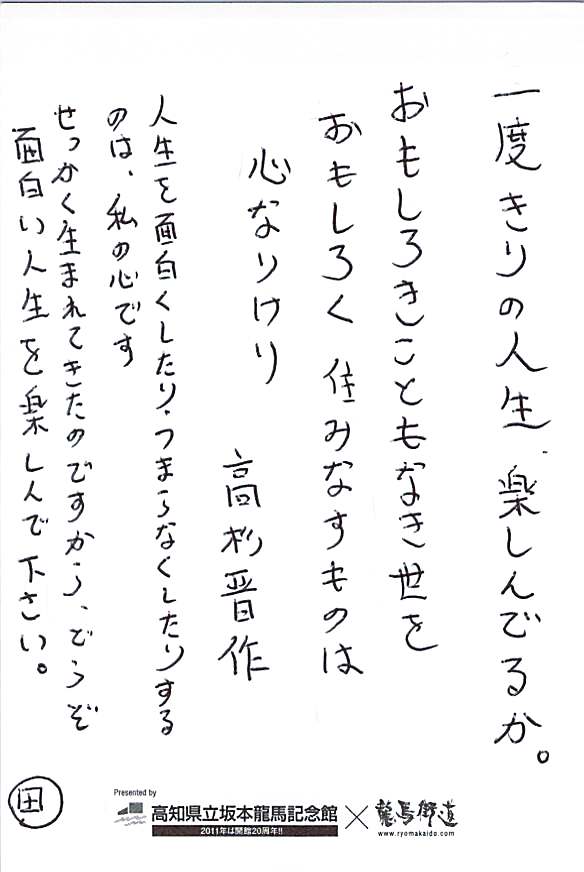 一度きりの人生、楽しんでるか。
おもしろきこともなき世を
おもしろく 住みなすものは
心なりけり
高杉晋作
人生を面白くしたり、つまらなくしたりする
のは、私の心です
せっかく生まれてきたのですから、どうぞ
面白い人生を楽しんで下さい。
田
Presented by
高知県立坂本龍馬記念館
2011年は開館20周年!!
×
龍馬街道
www.ryomakaido.com